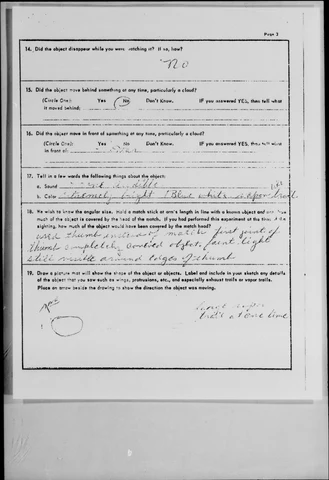 Page 3
14. Did the object disappear while you were watching it? If so, how?
No
15. Did the object move behind something at any time, particularly a cloud?
(Circle One): Yes No Don't Know. IF you answered YES, then tell what
it moved behind:
16. Did the object move in front of something at any time, particularly a cloud?
(Circle One): Yes No Don't Know. IF you answered YES, then tell what
in front of:
17. Tell in a few words the following things about the object:
a. Sound not audible
b. Color bright Blue white vapor trail
18. We wish to know the angular size. Hold a match stick at arm's length in line with a known object and note how
much of the object is covered by the head of the match. If you had performed this experiment at the time of the
sighting, how much of the object would have been covered by the match head?
used thumb instead of match first joint of
thumb completely object, faint light
still visible around edges of thumb
19. Draw a picture that will show the shape of the object or objects. Label and include in your sketch any details
of the object that you saw such as wings, protrusions, etc., and especially exhaust trails or vapor trails.
Place an arrow beside the drawing to show the direction the object was moving.
trail at one time